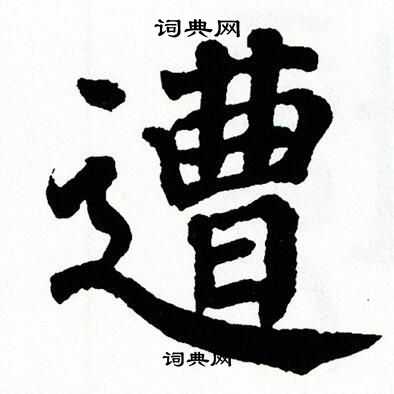 词典网
遭
词典网